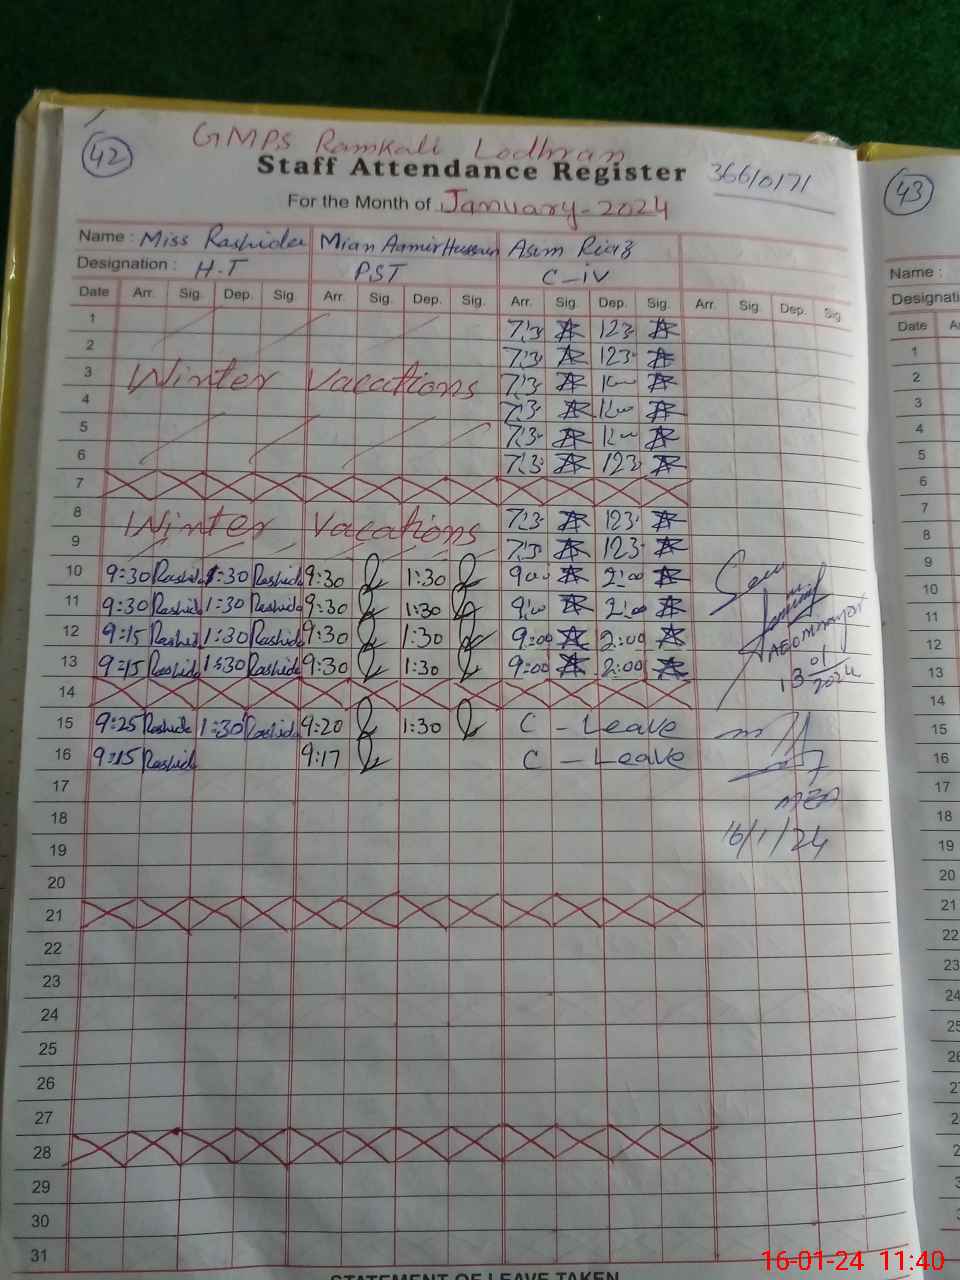 42 GMPS Ramkali Lodhran
Staff Attendance Register 366/0171
For the Month of January-2024
Name : Miss Rashida Mian Aamir Hussain Asim Riaz
Designation : H.T PST C-iv
Date Arr. Sig. Dep. Sig Arr. Sig. Dep. Sig. Arr. Sig. Dep. Sig. Arr. Sig. Dep. Sig
1 7:3 123
2 7:3 123
3 Winter Vacations 7:3
4 7:3
5 7:3
6 7:3 123
7
8 Winter Vacations 7:3 123
9 7:3 123
10 9:30 Rashid 1:30 Rashid 9:30 1:30 900 2:00
11 9:30 Rashid 1:30 Rashid 9:30 1:30 9:00 2:00
12 9:15 Rashid 1:30 Rashid 9:30 1:30 9:00 2:00
13 9:15 Rashid 1:30 Rashid 9:30 1:30 9:00 2:00
13/01/2024
14
15 9:25 Rashid 1:30 Rashid 9:20 1:30 C - Leave
16 9:15 Rashid 9:17 C - Leave
17
18
16/1/24
19
20
21
22
23
24
25
26
27
28
29
30
31
STATEMENT OF LEAVE TAKEN
43
Name :
Designati
Date
1
2
3
4
5
6
7
8
9
10
11
12
13
14
15
16
17
18
19
20
21
22
23
24
16-01-24 11:40